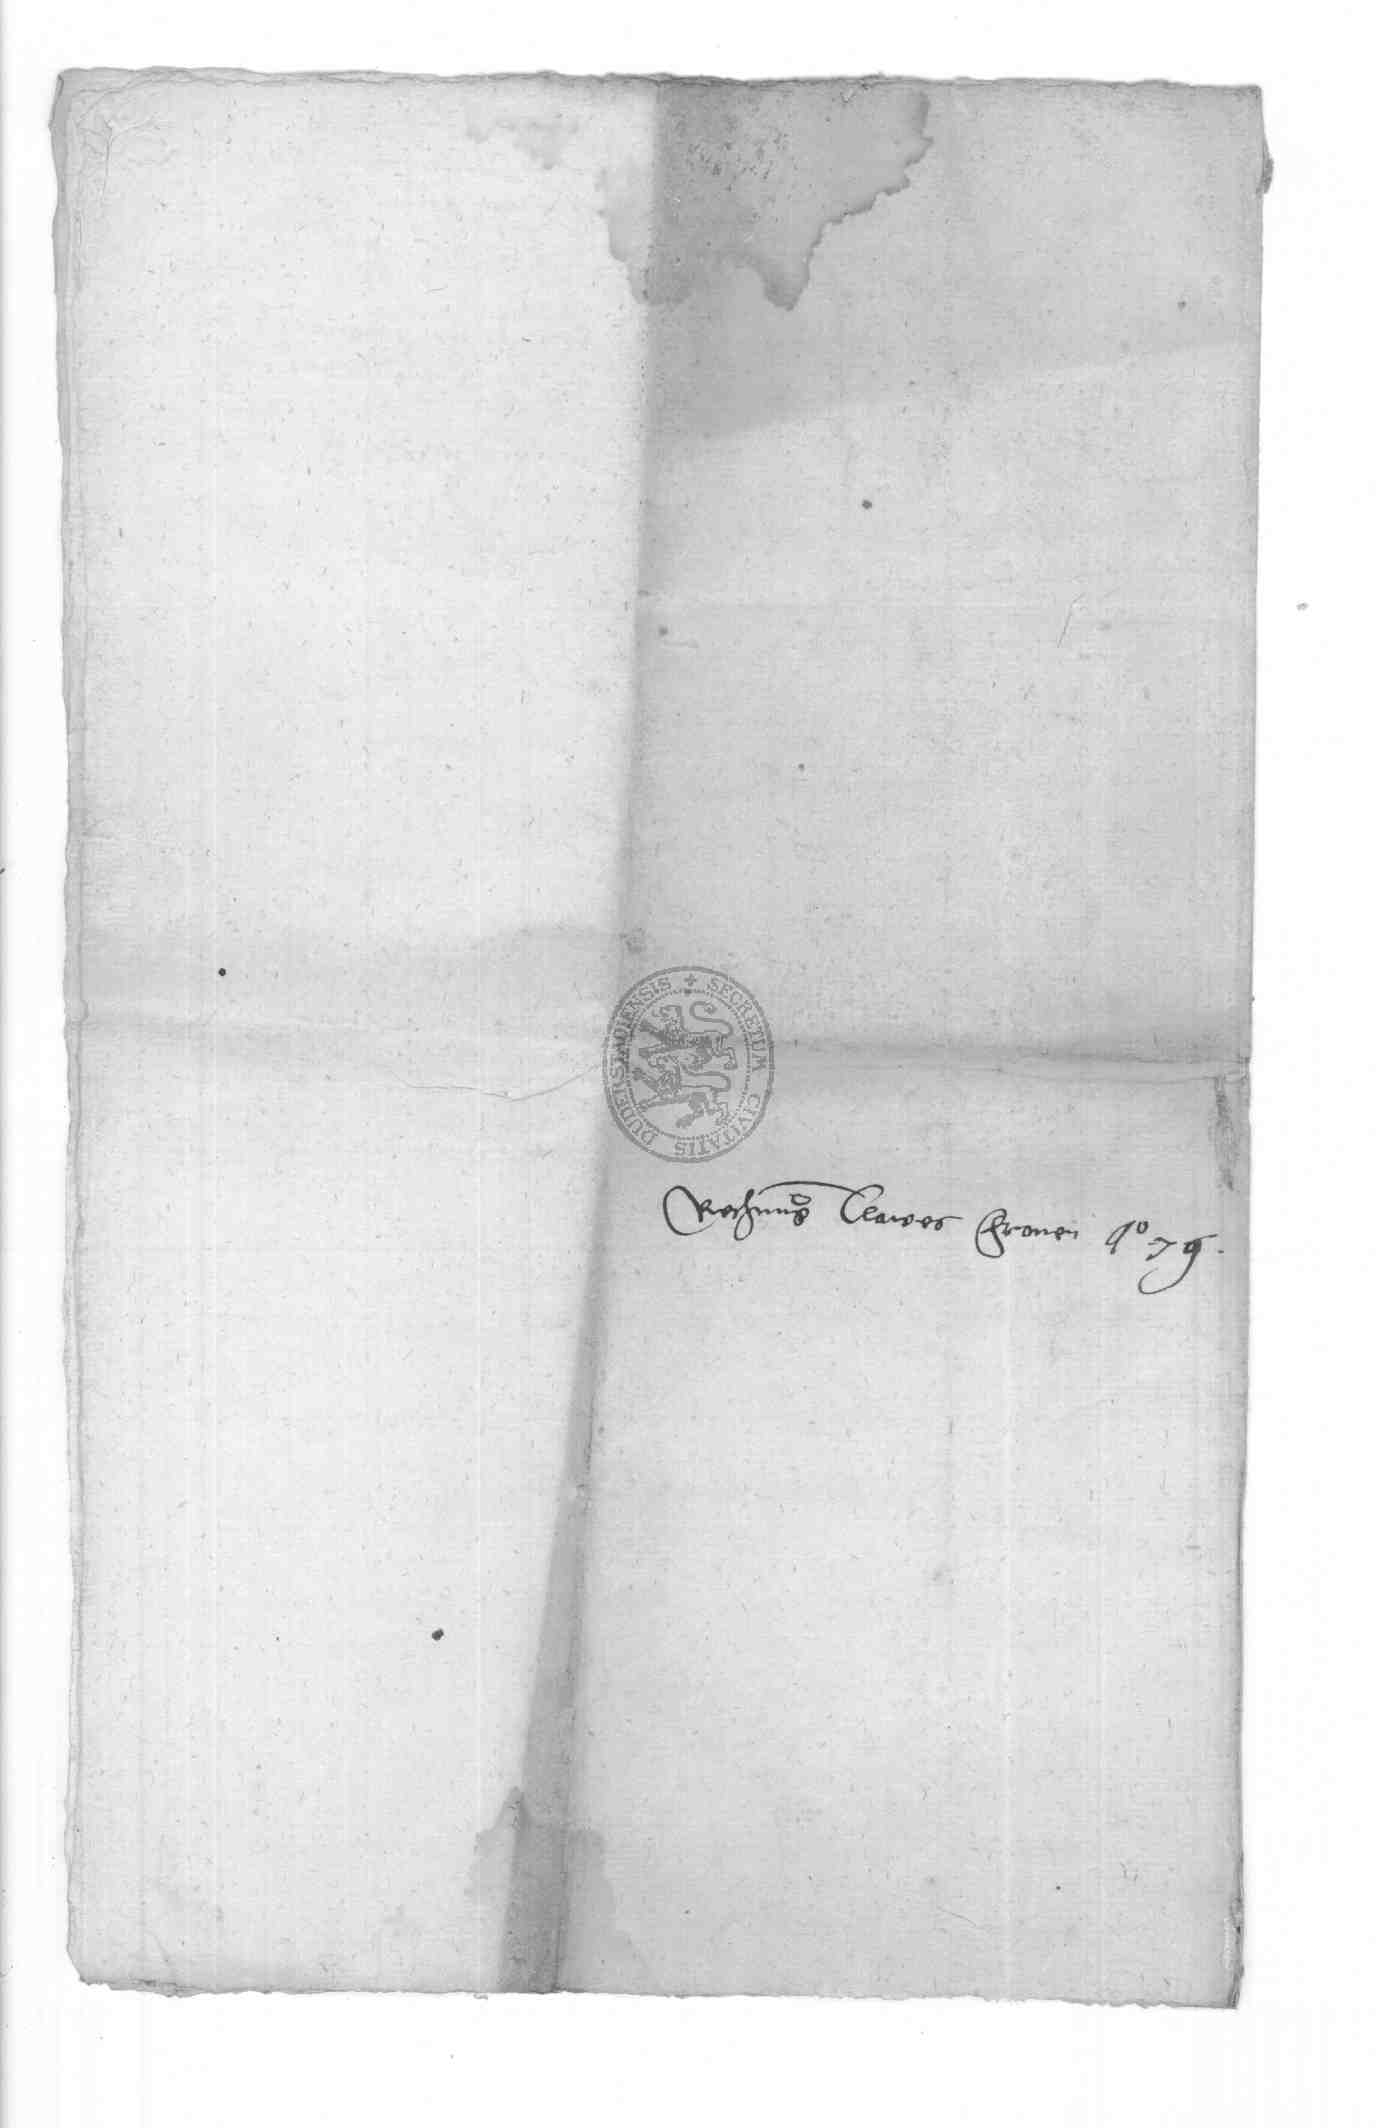 SECRETUM CIVITATIS DUDERSTADIENSIS
Rechnung Clawes Cronen Ao 79.